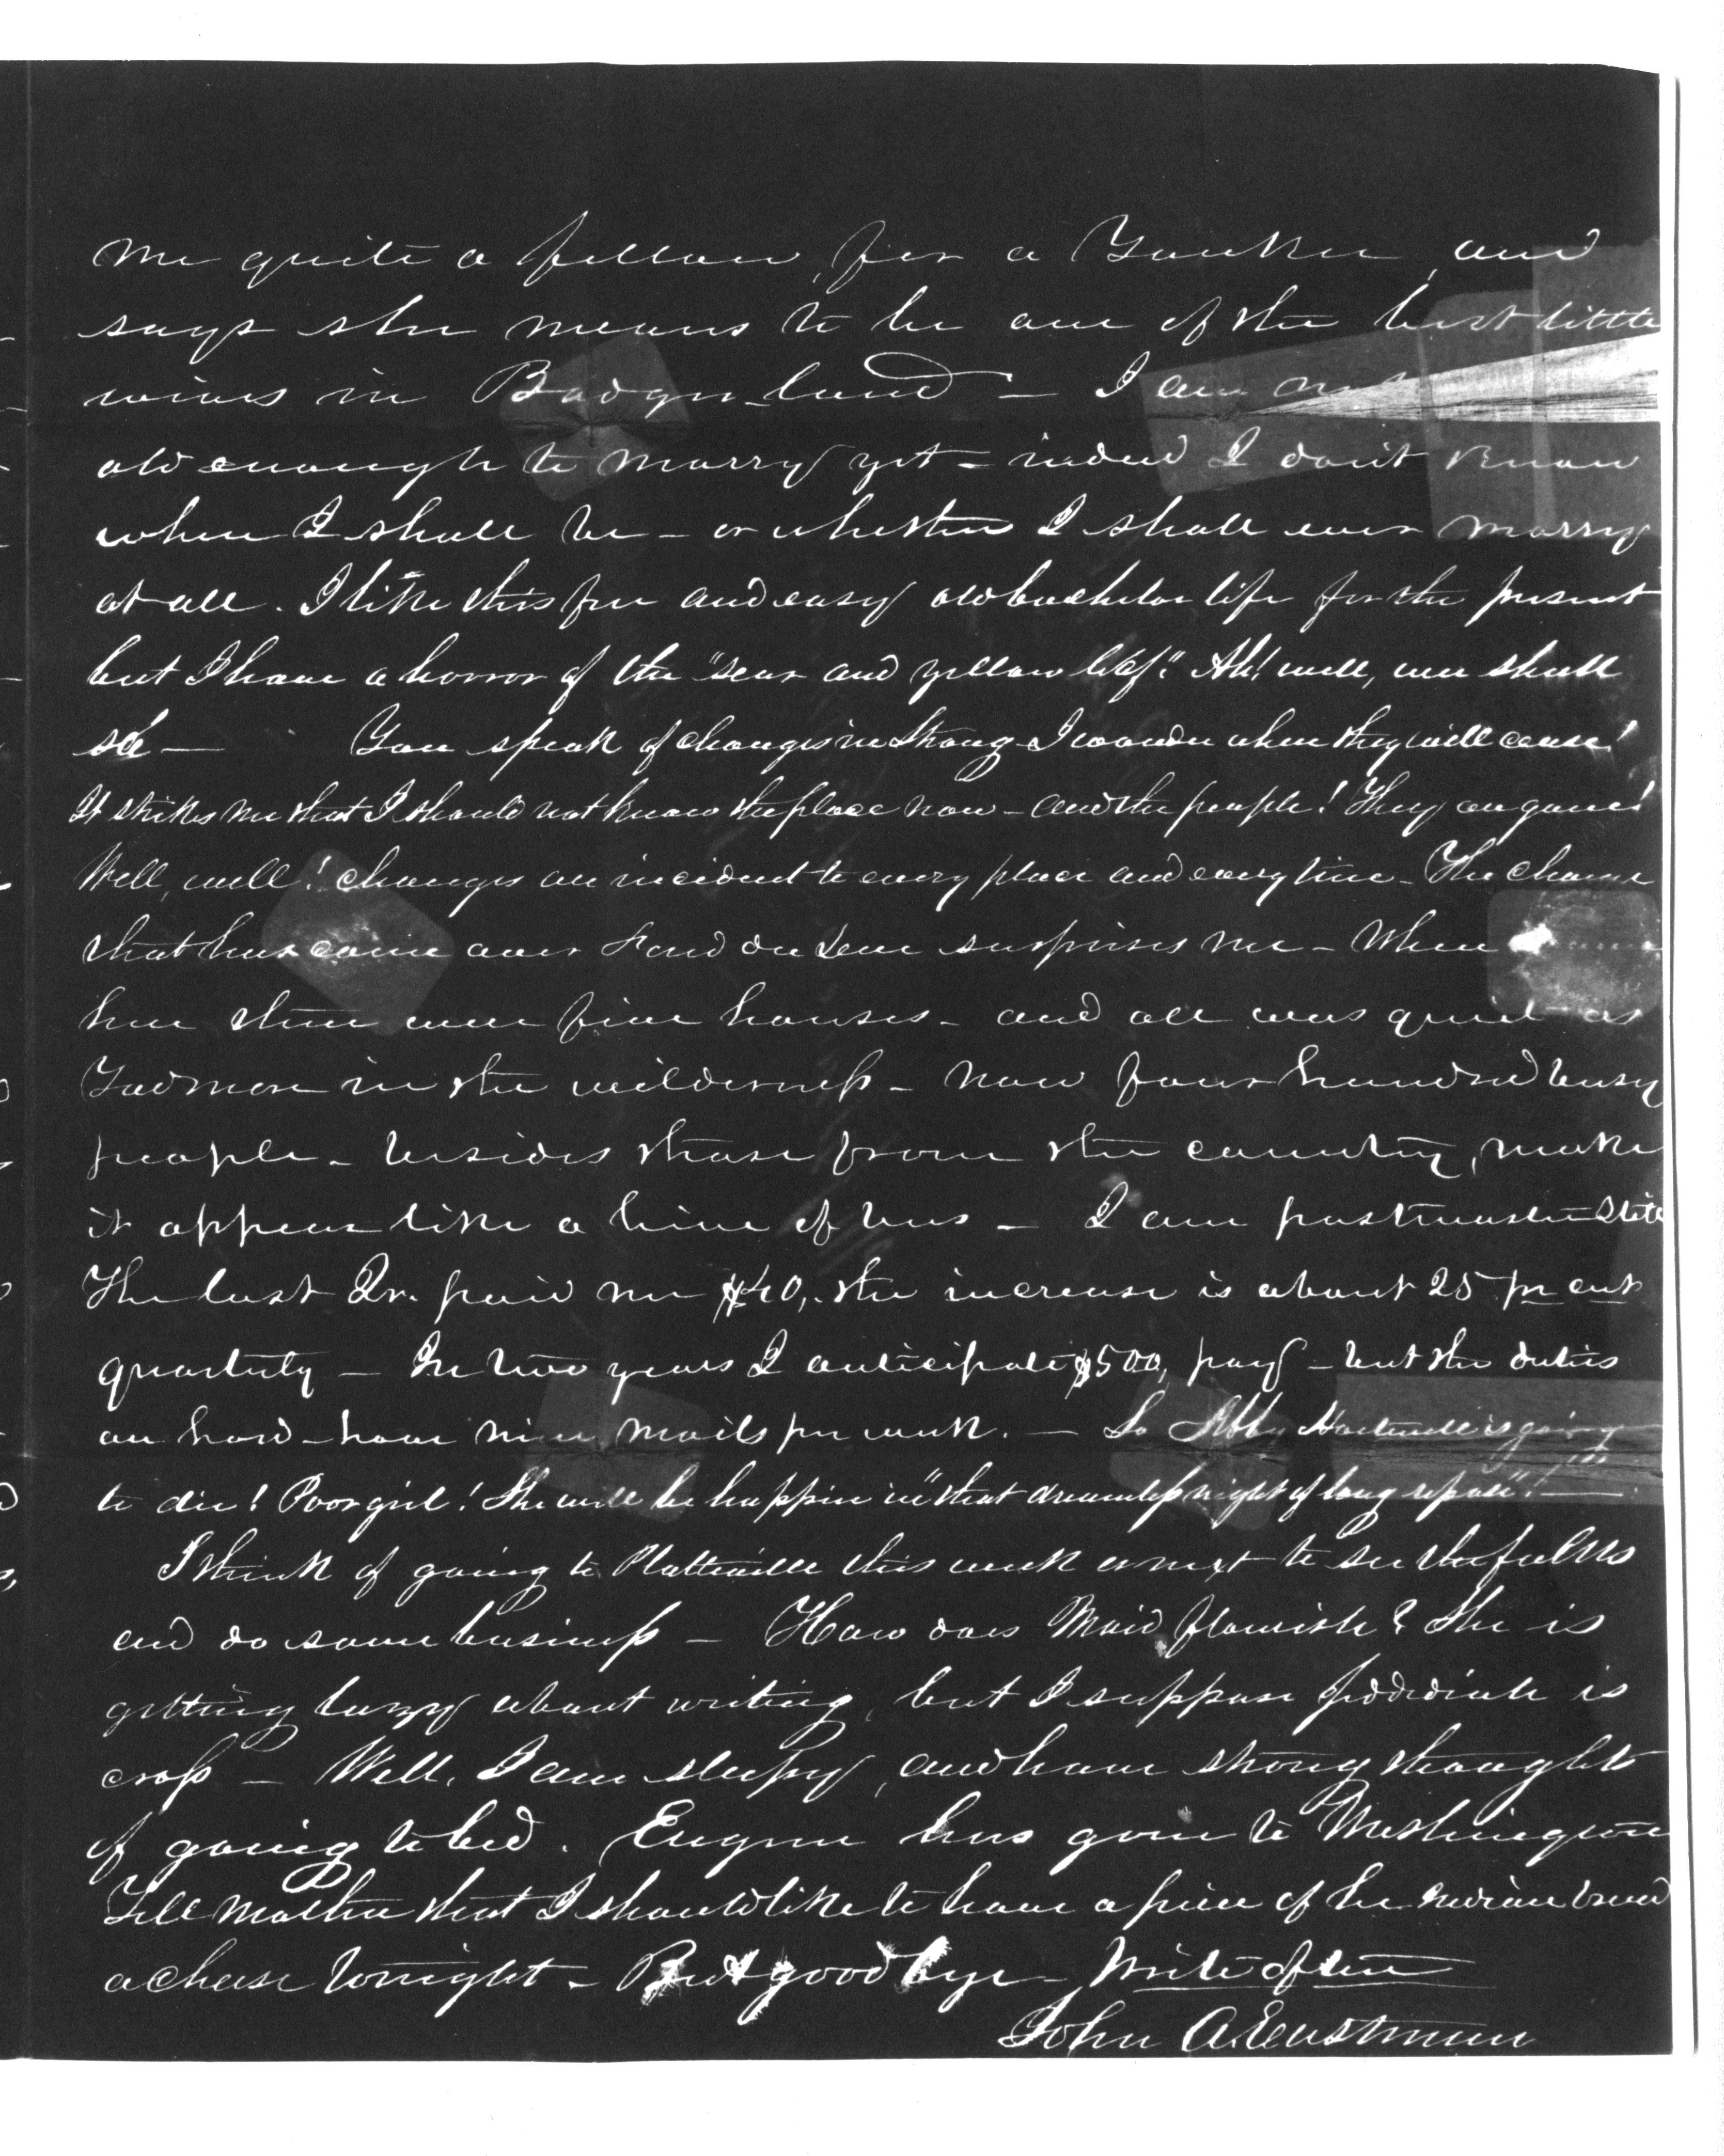 me quite a fellow, for a Yankee, and
says she means to be one of the best little
wives in Badger-land — I am not
old enough to marry yet — indeed I don't know
when I shall be — or whether I shall ever marry
at all. I like this free and easy old bachelor life for the present
but I have a horror of the "sear and yellow leaf." Ah! well, we shall
see — You speak of changes in Strong I wonder when they will cease!
It strikes me that I should not know the place now — and the people! They are gone!
Well, well! changes are incident to every place and every time — The change
that has come over Fond du Lac surprises me — When
here there were five houses — and all was quiet as
Tadmor in the wilderness — now four hundred busy
people — besides those from the country, make
it appear like a hive of bees — I am postmaster still
The last Qr. paid me $40, the increase is about 25 pr cent
quarterly — In two years I anticipate $500, pay — but the duties
are hard — have nine mails per week. — So Abby is going
to die! Poor girl! She will be happier in "that dreamless night of long repose"! —
I think of going to Platteville this week or next to see the folks
and do some business — How does Maid flourish? She is
getting lazy about writing, but I suppose is
cross — Well, I am sleepy, and have strong thoughts
of going to bed. Eugene has gone to Washington
Tell Mother that I should like to have a piece of her Indian bread
a cheese tonight — But good bye — Write often
John A. Eastman